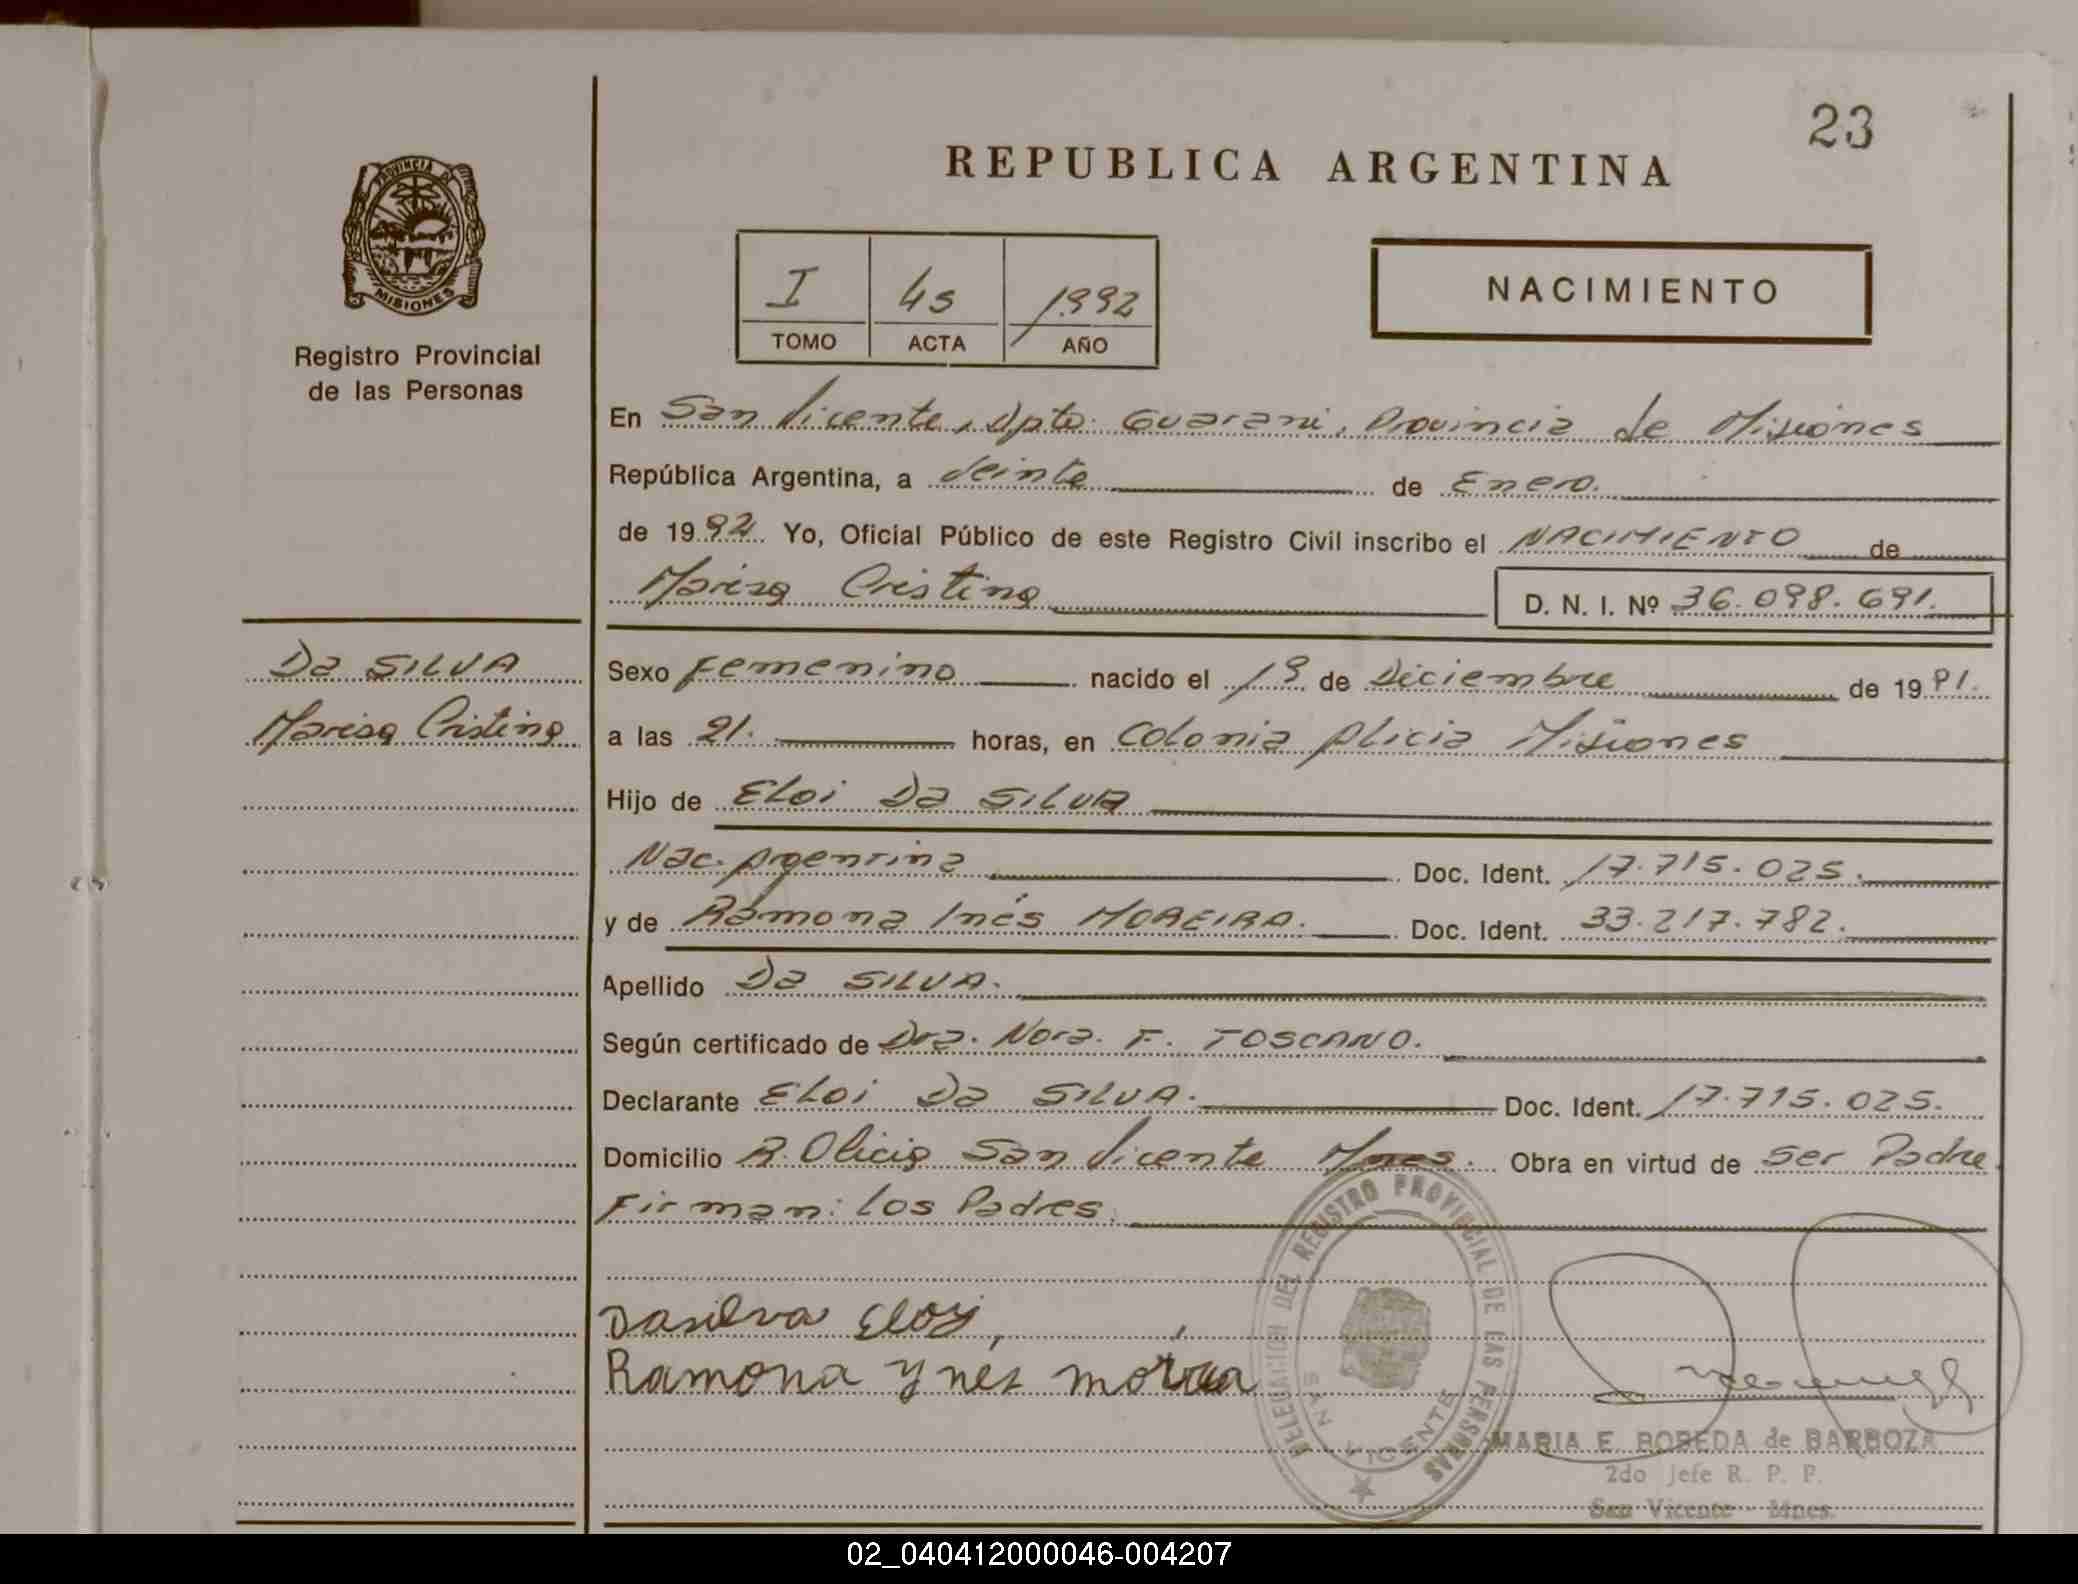 23
REPUBLICA ARGENTINA
PROVINCIA DE
MISIONES
Registro Provincial
de las Personas
I 45 1992
TOMO ACTA AÑO
NACIMIENTO
En San Vicente, Dpto. Guarani, Provincia de Misiones
República Argentina, a Veinte de Enero.
de 1992 Yo, Oficial Público de este Registro Civil inscribo el NACIMIENTO de
Marisa Cristina D. N. I. Nº 36.098.691.
DA SILVA
Marisa Cristina
Sexo Femenino nacido el 19 de Diciembre de 1991.
a las 21. horas, en Colonia Alicia Misiones
Hijo de ELOI DA SILVA
Nac. Argentina Doc. Ident. 17.715.025.
y de Ramona Inés MOREIRA. Doc. Ident. 33.217.782.
Apellido DA SILVA.
Según certificado de Dra. Nora. F. TOSCANO.
Declarante ELOI DA SILVA. Doc. Ident. 17.715.025.
Domicilio A. Alicia San Vicente Mnes. Obra en virtud de Ser Padre
Firman: los Padres.
Dasilva Eloy
Ramona Ynés
DELEGACION DEL REGISTRO PROVINCIAL DE LAS PERSONAS
SAN VICENTE
MARIA E. BOBEDA de BARBOZA
2do Jefe R. P. P.
San Vicente - Mnes.
02_040412000046-004207